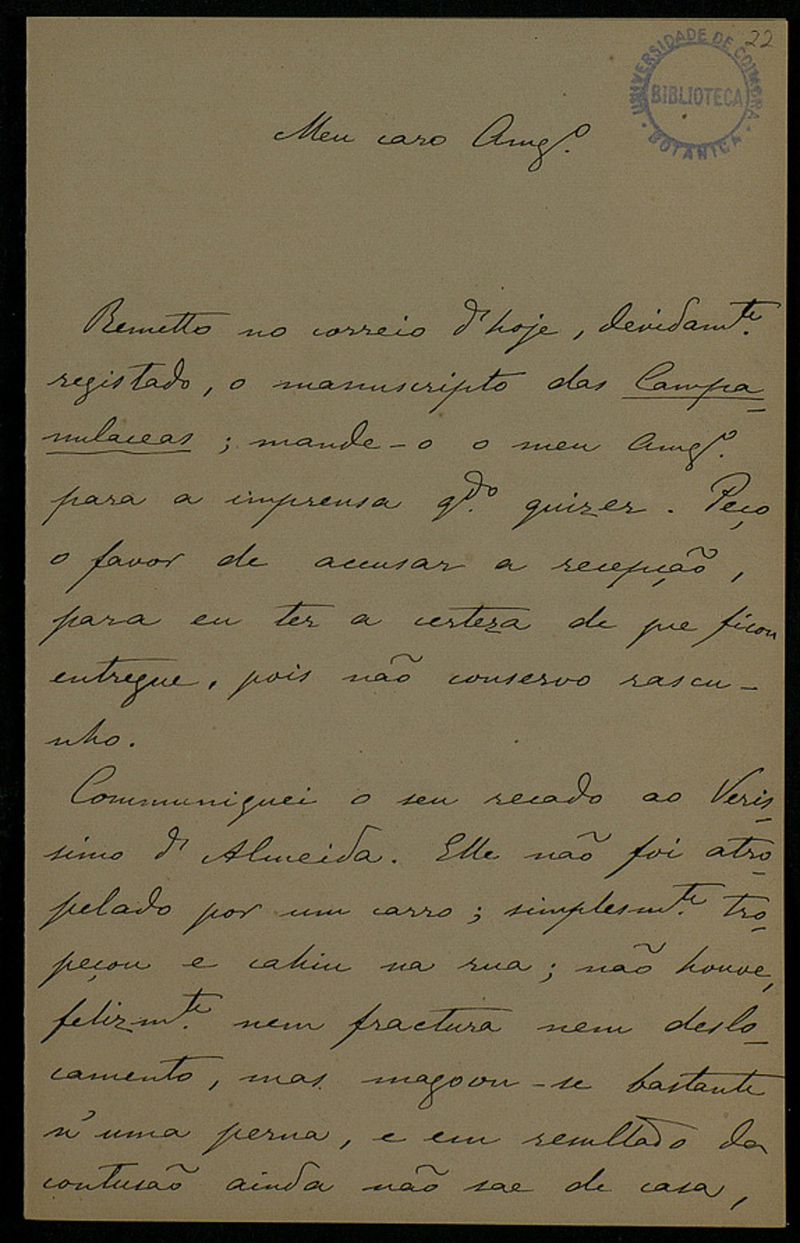 22
UNIVERSIDADE DE COIMBRA
BIBLIOTECA
BOTANICA
Meu caro Amg.º
Remetto no correio d'hoje, devidamte.
registado, o manuscripto das Campa-
nulaceas; mande-o o meu Amg.º
para a imprensa qdo. quizer. Peço
o favor de accusar a recepção,
para eu ter a certeza de que ficou
entregue, pois não conservo rascu-
nho.
Communiquei o seu recado ao Veris-
simo d'Almeida. Elle não foi atro-
pelado por um carro; simplesmte. tro-
peçou e cahiu na rua; não houve,
felizmte. nem fractura nem deslo-
camento, mas magoou-se bastante
n'uma perna, e em resultado da
contusão ainda não sae de casa,